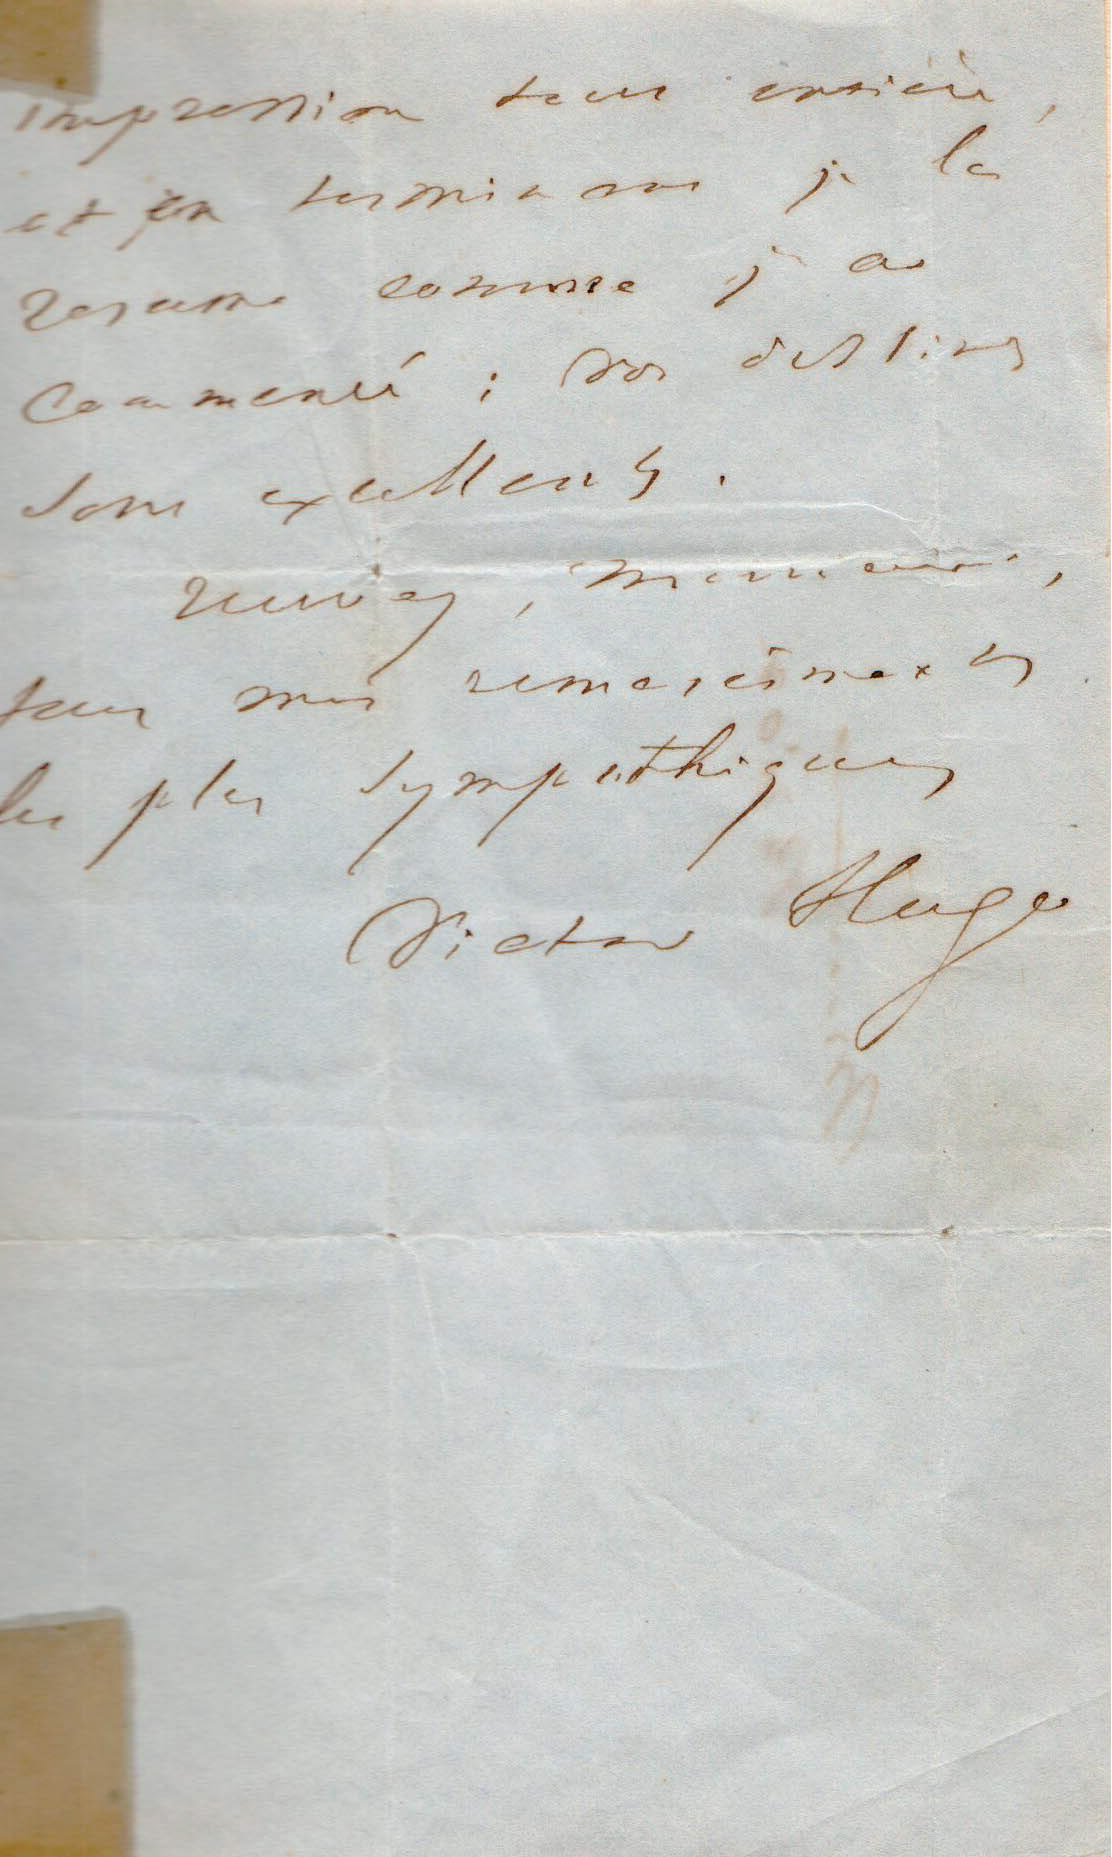 impression toute entière,
et en terminant je la
resume comme je l'ai
commencé ; vos dessins
sont excellents.
recevez, Monsieur,
tous mes remercîments
les plus sympathiques
Victor Hugo